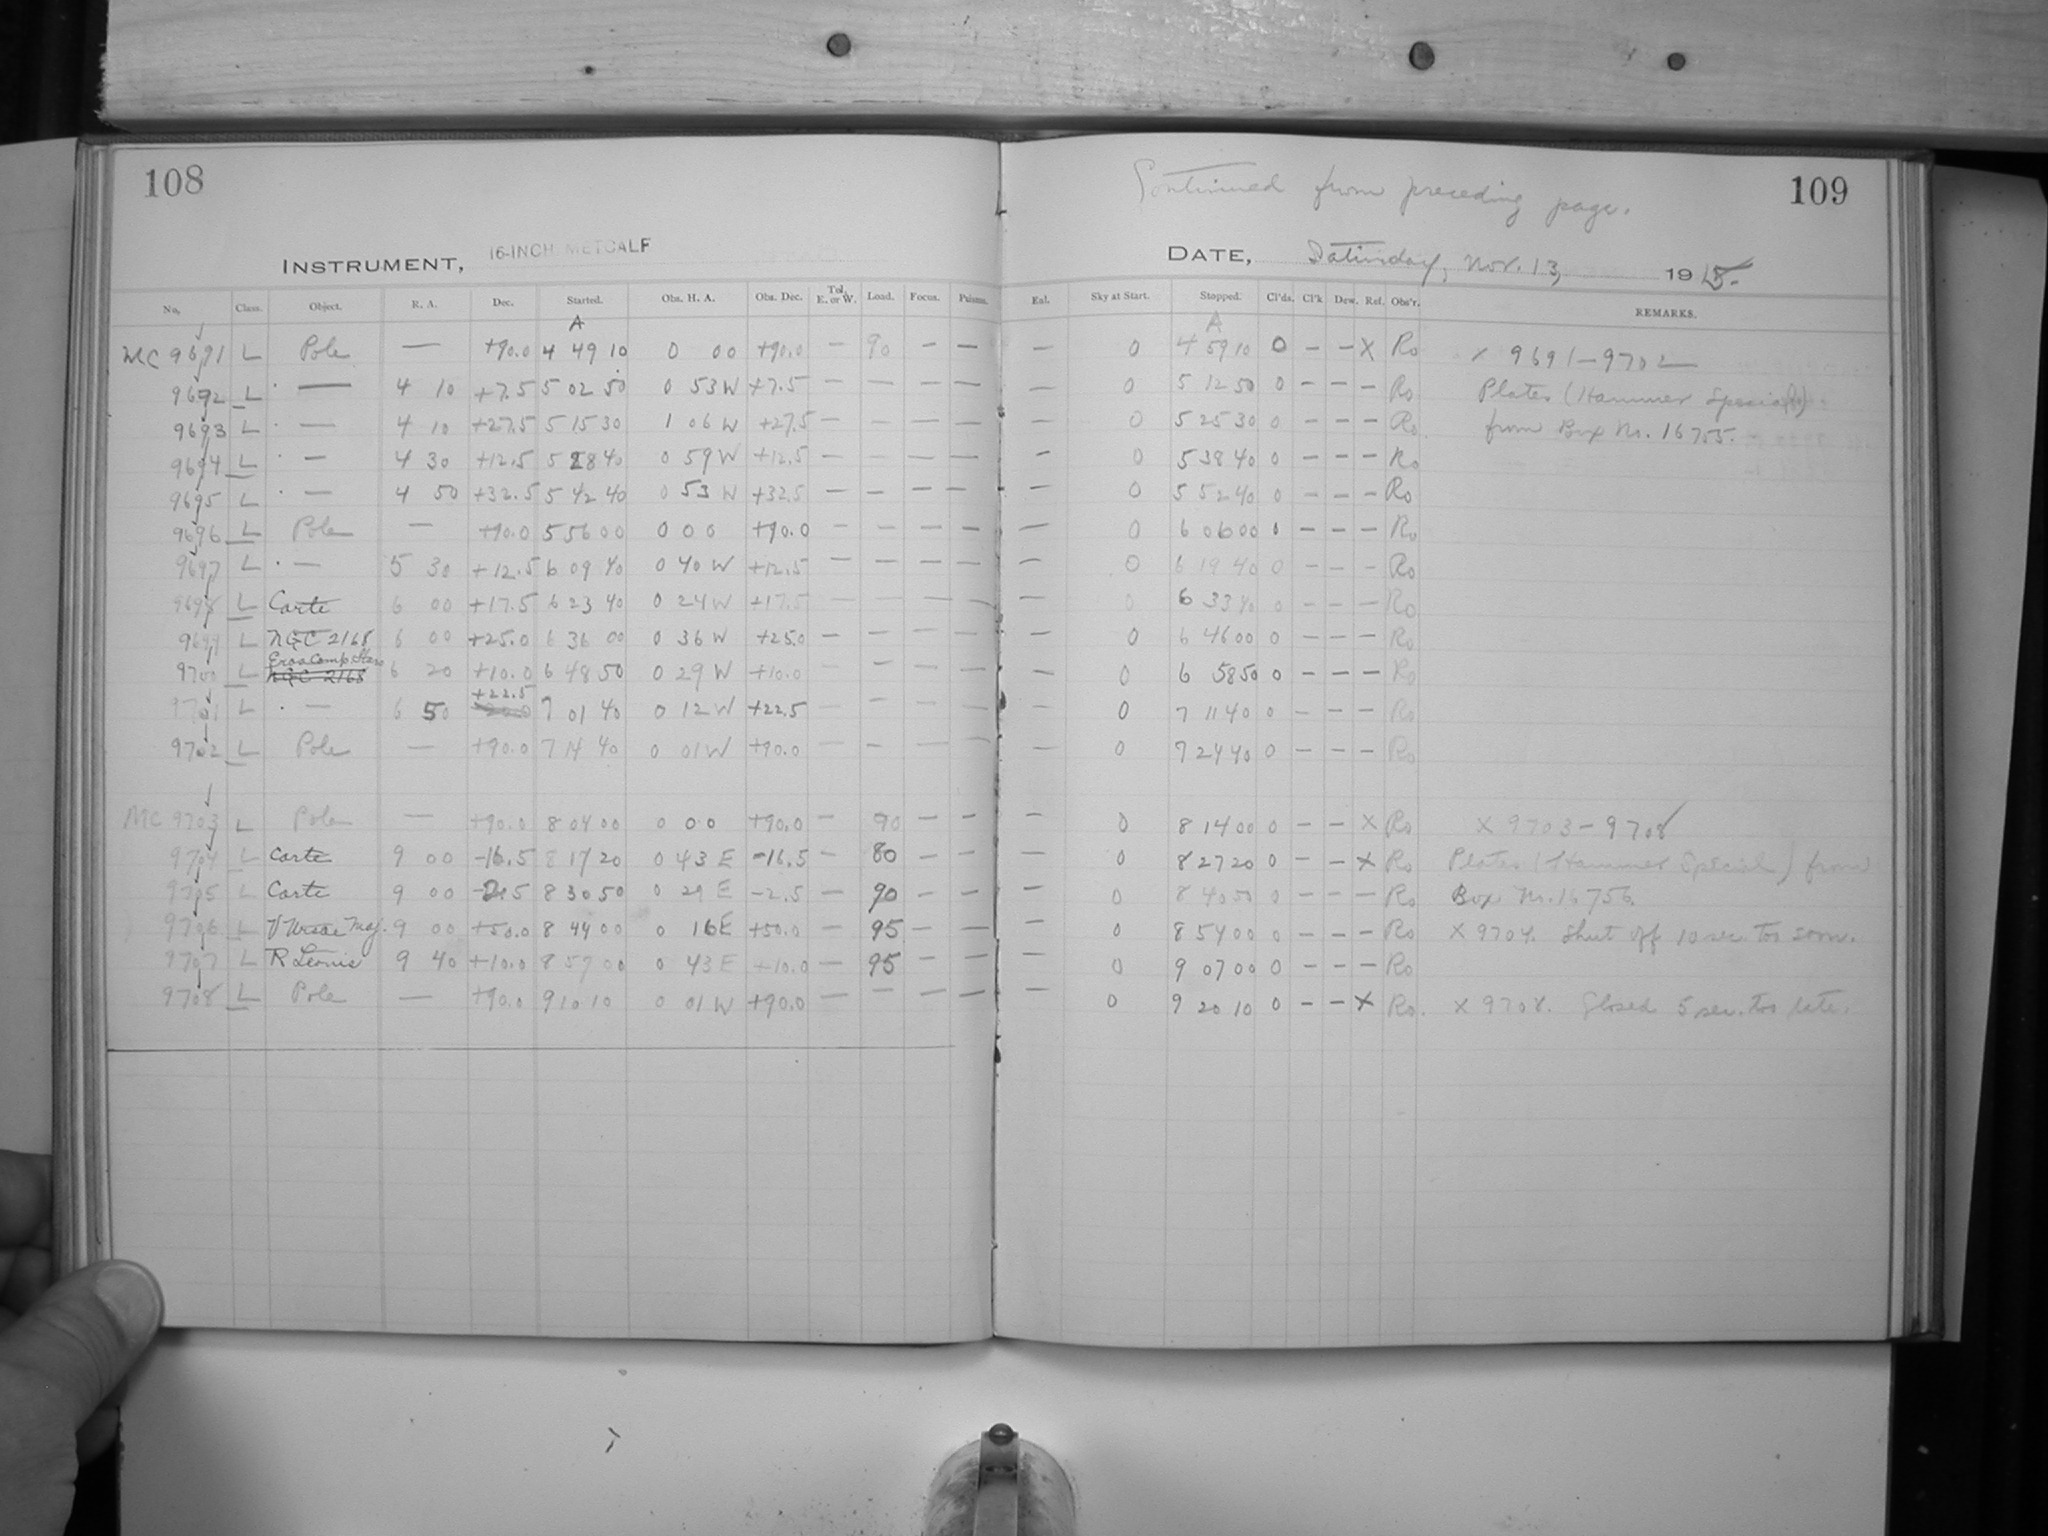 108
INSTRUMENT, 16-INCH METCALF
No. Class. Object. R. A. Dec. Started. Obs. H. A. Obs. Dec. Tel. E. or W. Load. Focus. Prisms.
A
MC 9691 L Pole — +90.0 4 49 10 0 00 +90.0 — 90 — —
9692 L · — 4 10 +7.5 5 02 50 0 53 W +7.5 — — — —
9693 L · — 4 10 +27.5 5 15 30 1 06 W +27.5 — — — —
9694 L · — 4 30 +12.5 5 28 40 0 59 W +12.5 — — — —
9695 L · — 4 50 +32.5 5 42 40 0 53 W +32.5 — — — —
9696 L Pole — +90.0 5 56 00 0 00 +90.0 — — — —
9697 L · — 5 30 +12.5 6 09 40 0 40 W +12.5 — — — —
9698 L Carte 6 00 +17.5 6 23 40 0 24 W +17.5 — — — —
9699 L NGC 2168 6 00 +25.0 6 36 00 0 36 W +25.0 — — — —
Eros Comp. Stars
9700 L NGC 2168 6 20 +10.0 6 48 50 0 29 W +10.0 — — — —
+22.5
9701 L · — 6 50 7 01 40 0 12 W +22.5 — — — —
9702 L Pole — +90.0 7 14 40 0 01 W +90.0 — — — —
MC 9703 L Pole — +90.0 8 04 00 0 00 +90.0 — 90 — —
9704 L Carte 9 00 -16.5 8 17 20 0 43 E -16.5 — 80 — —
9705 L Carte 9 00 -2.5 8 30 50 0 29 E -2.5 — 90 — —
9706 L V Ursae Maj. 9 00 +50.0 8 44 00 0 16 E +50.0 — 95 — —
9707 L R Leonis 9 40 +10.0 8 57 00 0 43 E +10.0 — 95 — —
9708 L Pole — +90.0 9 10 10 0 01 W +90.0 — — — —
Continued from preceding page.
109
DATE, Saturday, Nov. 13, 1915.
Sky at Start. Stopped. Cl'ds. Cl'k Dew. Ref. Obs'r. REMARKS.
A
— 0 4 59 10 0 — — X Ro x 9691—9702
— 0 5 12 50 0 — — — Ro Plates (Hammer Special)
— 0 5 25 30 0 — — — Ro. from Box No. 16755.
— 0 5 38 40 0 — — — Ro
— 0 5 52 40 0 — — — Ro
— 0 6 06 00 0 — — — Ro
— 0 6 19 40 0 — — — Ro
— 0 6 33 40 0 — — — Ro
— 0 6 46 00 0 — — — Ro
— 0 6 58 50 0 — — — Ro
— 0 7 11 40 0 — — — Ro
— 0 7 24 40 0 — — — Ro
— 0 8 14 00 0 — — X Ro X 9703—9708
— 0 8 27 20 0 — — X Ro Plates (Hammer Special) from
— 0 8 40 50 0 — — — Ro Box No. 16756.
— 0 8 54 00 0 — — — Ro X 9704. Shut off 10 sec. too soon.
— 0 9 07 00 0 — — — Ro
— 0 9 20 10 0 — — X Ro. X 9708. Closed 5 sec. too late.